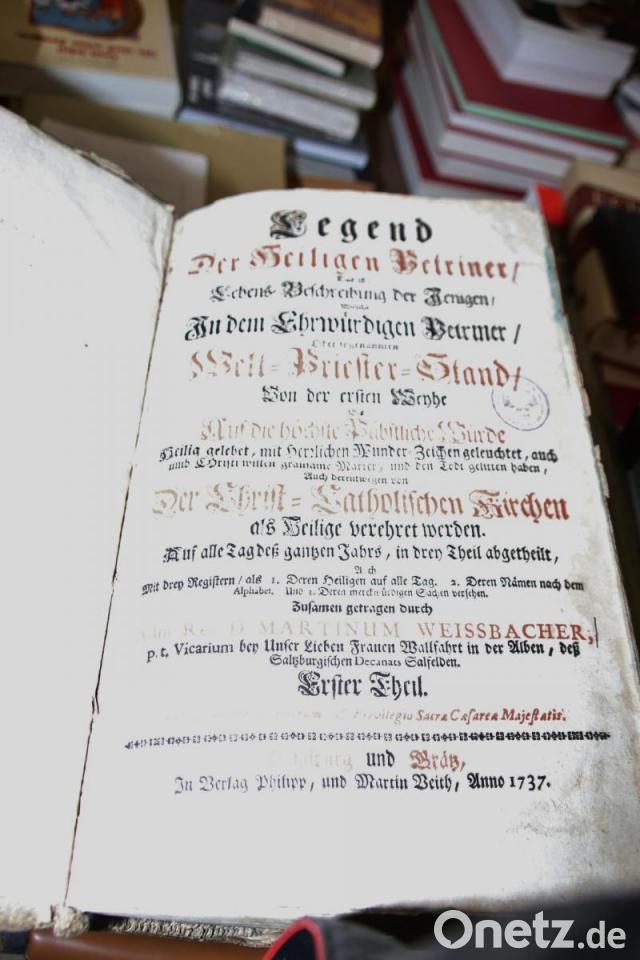 Legend
Der Heiligen Petriner/
Das ist
Lebens-Beschreibung der Jenigen/
Welche
In dem Ehrwürdigen Petriner/
Oder sogenannten
Welt-Priester-Stand/
Von der ersten Weyhe
Auf die höchste Päbstliche Würde
Heilig gelebet, mit Herrlichen Wunder-Zeichen geleuchtet, auch
umb Christi willen grausame Marter, und den Todt gelitten haben,
Auch derentwegen von
Der Christ-Catholischen Kirchen
als Heilige verehret werden.
Auf alle Tag deß gantzen Jahrs, in drey Theil abgetheilt,
Auch
Mit drey Registern/ als 1. Deren Heiligen auf alle Tag. 2. Deren Nämen nach dem
Alphabet. Und 3. Deren merckwürdigen Sachen versehen.
Zusamen getragen durch
D. MARTINUM WEISSBACHER,
p. t. Vicarium bey Unser Lieben Frauen Wallfahrt in der Alben, deß
Saltzburgischen Decanats Salfelden.
Erster Theil.
Privilegio Sacræ Cæsareæ Majestatis.
und Grätz,
In Verlag Philipp, und Martin Veith, Anno 1737.
Onetz.de